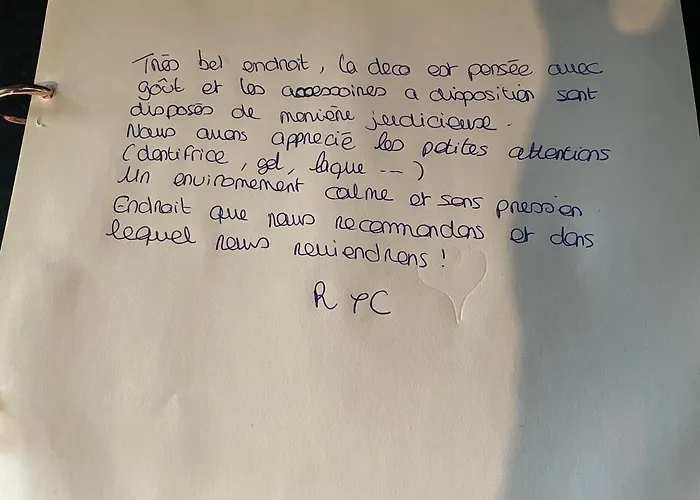 Très bel endroit, la deco est pensée avec
goût et les accessoires a disposition sont
disposés de manière judicieuse.
Nous avons apprecié les petites attentions
(dentifrice, gel, laque ---)
Un environement calme et sans pression
Endroit que nous recommandons et dans
lequel nous reviendrons !
R + C